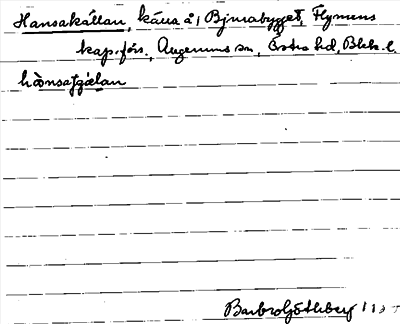 Hansakällan, källa å, Bjurabygget, Flymens
kap.förs., Augerums sn, Östra hd, Blek. l.
hànsaçälan
Barbro Göthberg